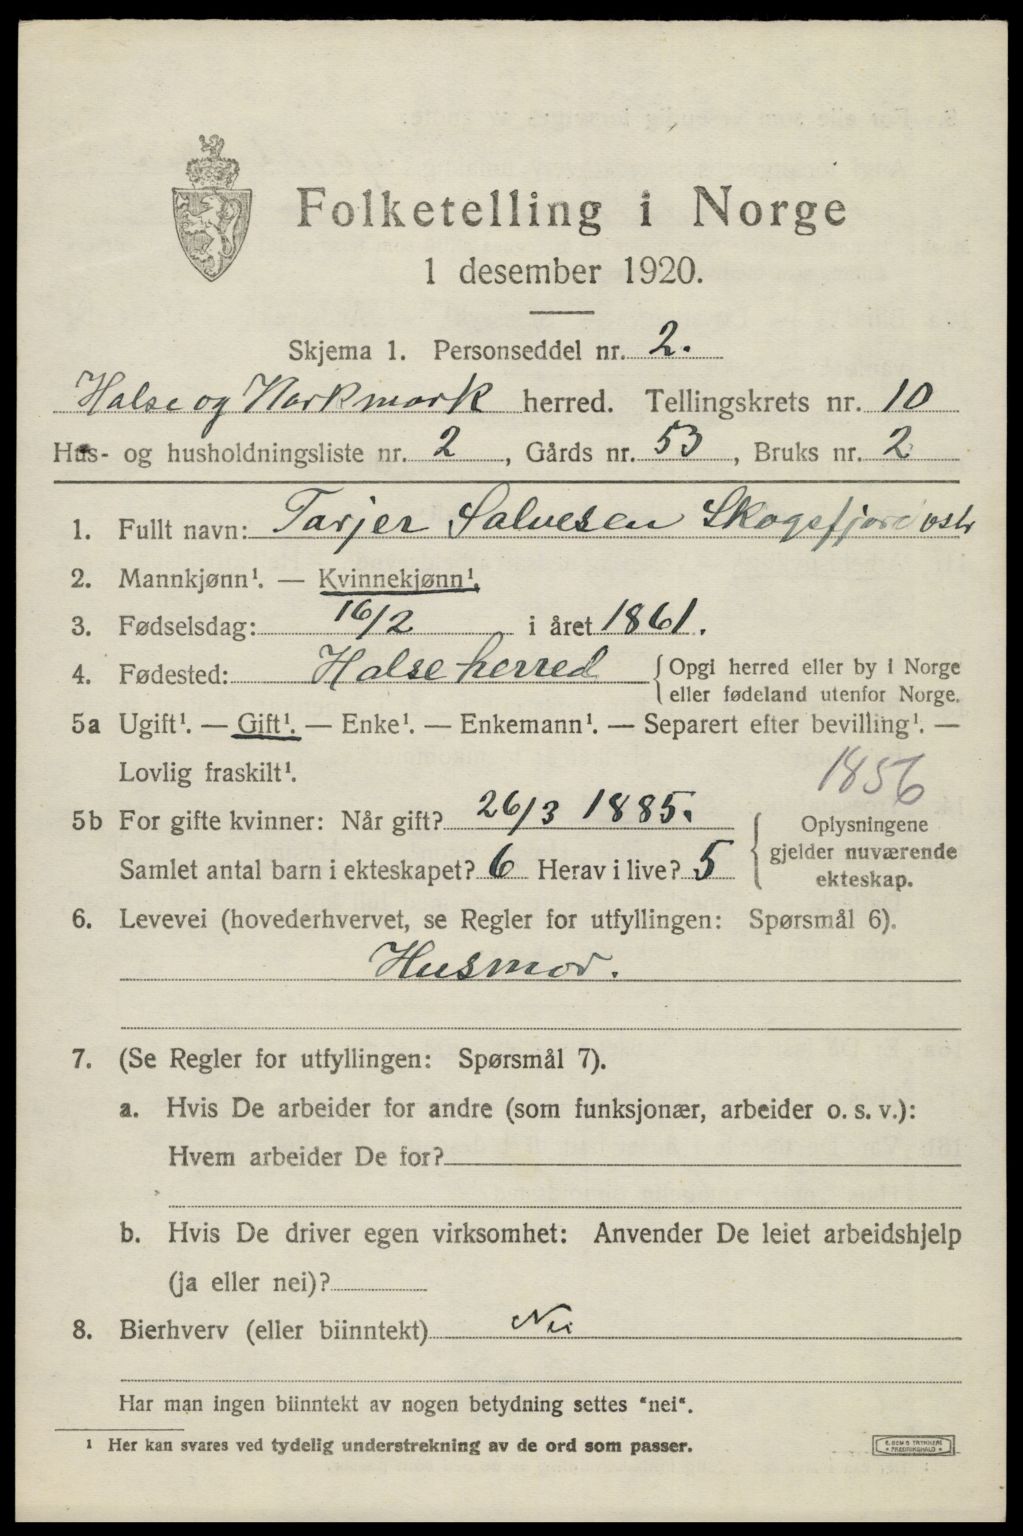 Folketelling i Norge
1 desember 1920.
Skjema 1. Personseddel nr. 2.
Halse og Harkmark herred. Tellingskrets nr. 10
Hus- og husholdningsliste nr. 2, Gårds nr. 53, Bruks nr. 2
1. Fullt navn: Tarjer Salvesen Skogsfjord østr
2. Mannkjønn¹. — Kvinnekjønn¹.
3. Fødselsdag: 16/2 i året 1861.
4. Fødested: Halse herred { Opgi herred eller by i Norge
eller fødeland utenfor Norge.
5a Ugift¹. — Gift¹. — Enke¹. — Enkemann¹. — Separert efter bevilling¹. —
Lovlig fraskilt¹.
1856
5b For gifte kvinner: Når gift? 26/3 1885. { Oplysningene
gjelder nuværende
ekteskap.
Samlet antal barn i ekteskapet? 6 Herav i live? 5
6. Levevei (hovederhvervet, se Regler for utfyllingen: Spørsmål 6).
Husmor.
7. (Se Regler for utfyllingen: Spørsmål 7).
a. Hvis De arbeider for andre (som funksjonær, arbeider o. s. v.):
Hvem arbeider De for?
b. Hvis De driver egen virksomhet: Anvender De leiet arbeidshjelp
(ja eller nei)?
8. Bierhverv (eller biinntekt) Nei
Har man ingen biinntekt av nogen betydning settes "nei".
¹ Her kan svares ved tydelig understrekning av de ord som passer.